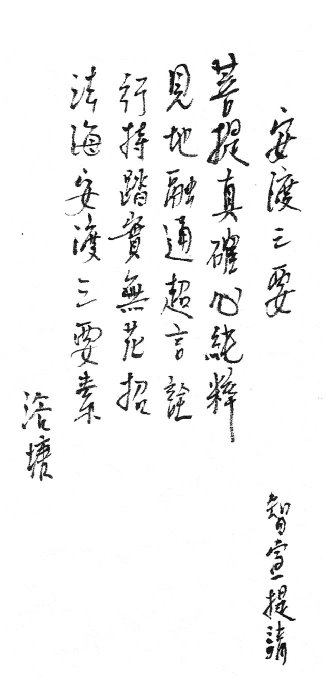 安渡三要
智宣提請
菩提真確心純粹
見地融通超言詮
行持踏實無花招
法海安渡三要素
洛塘